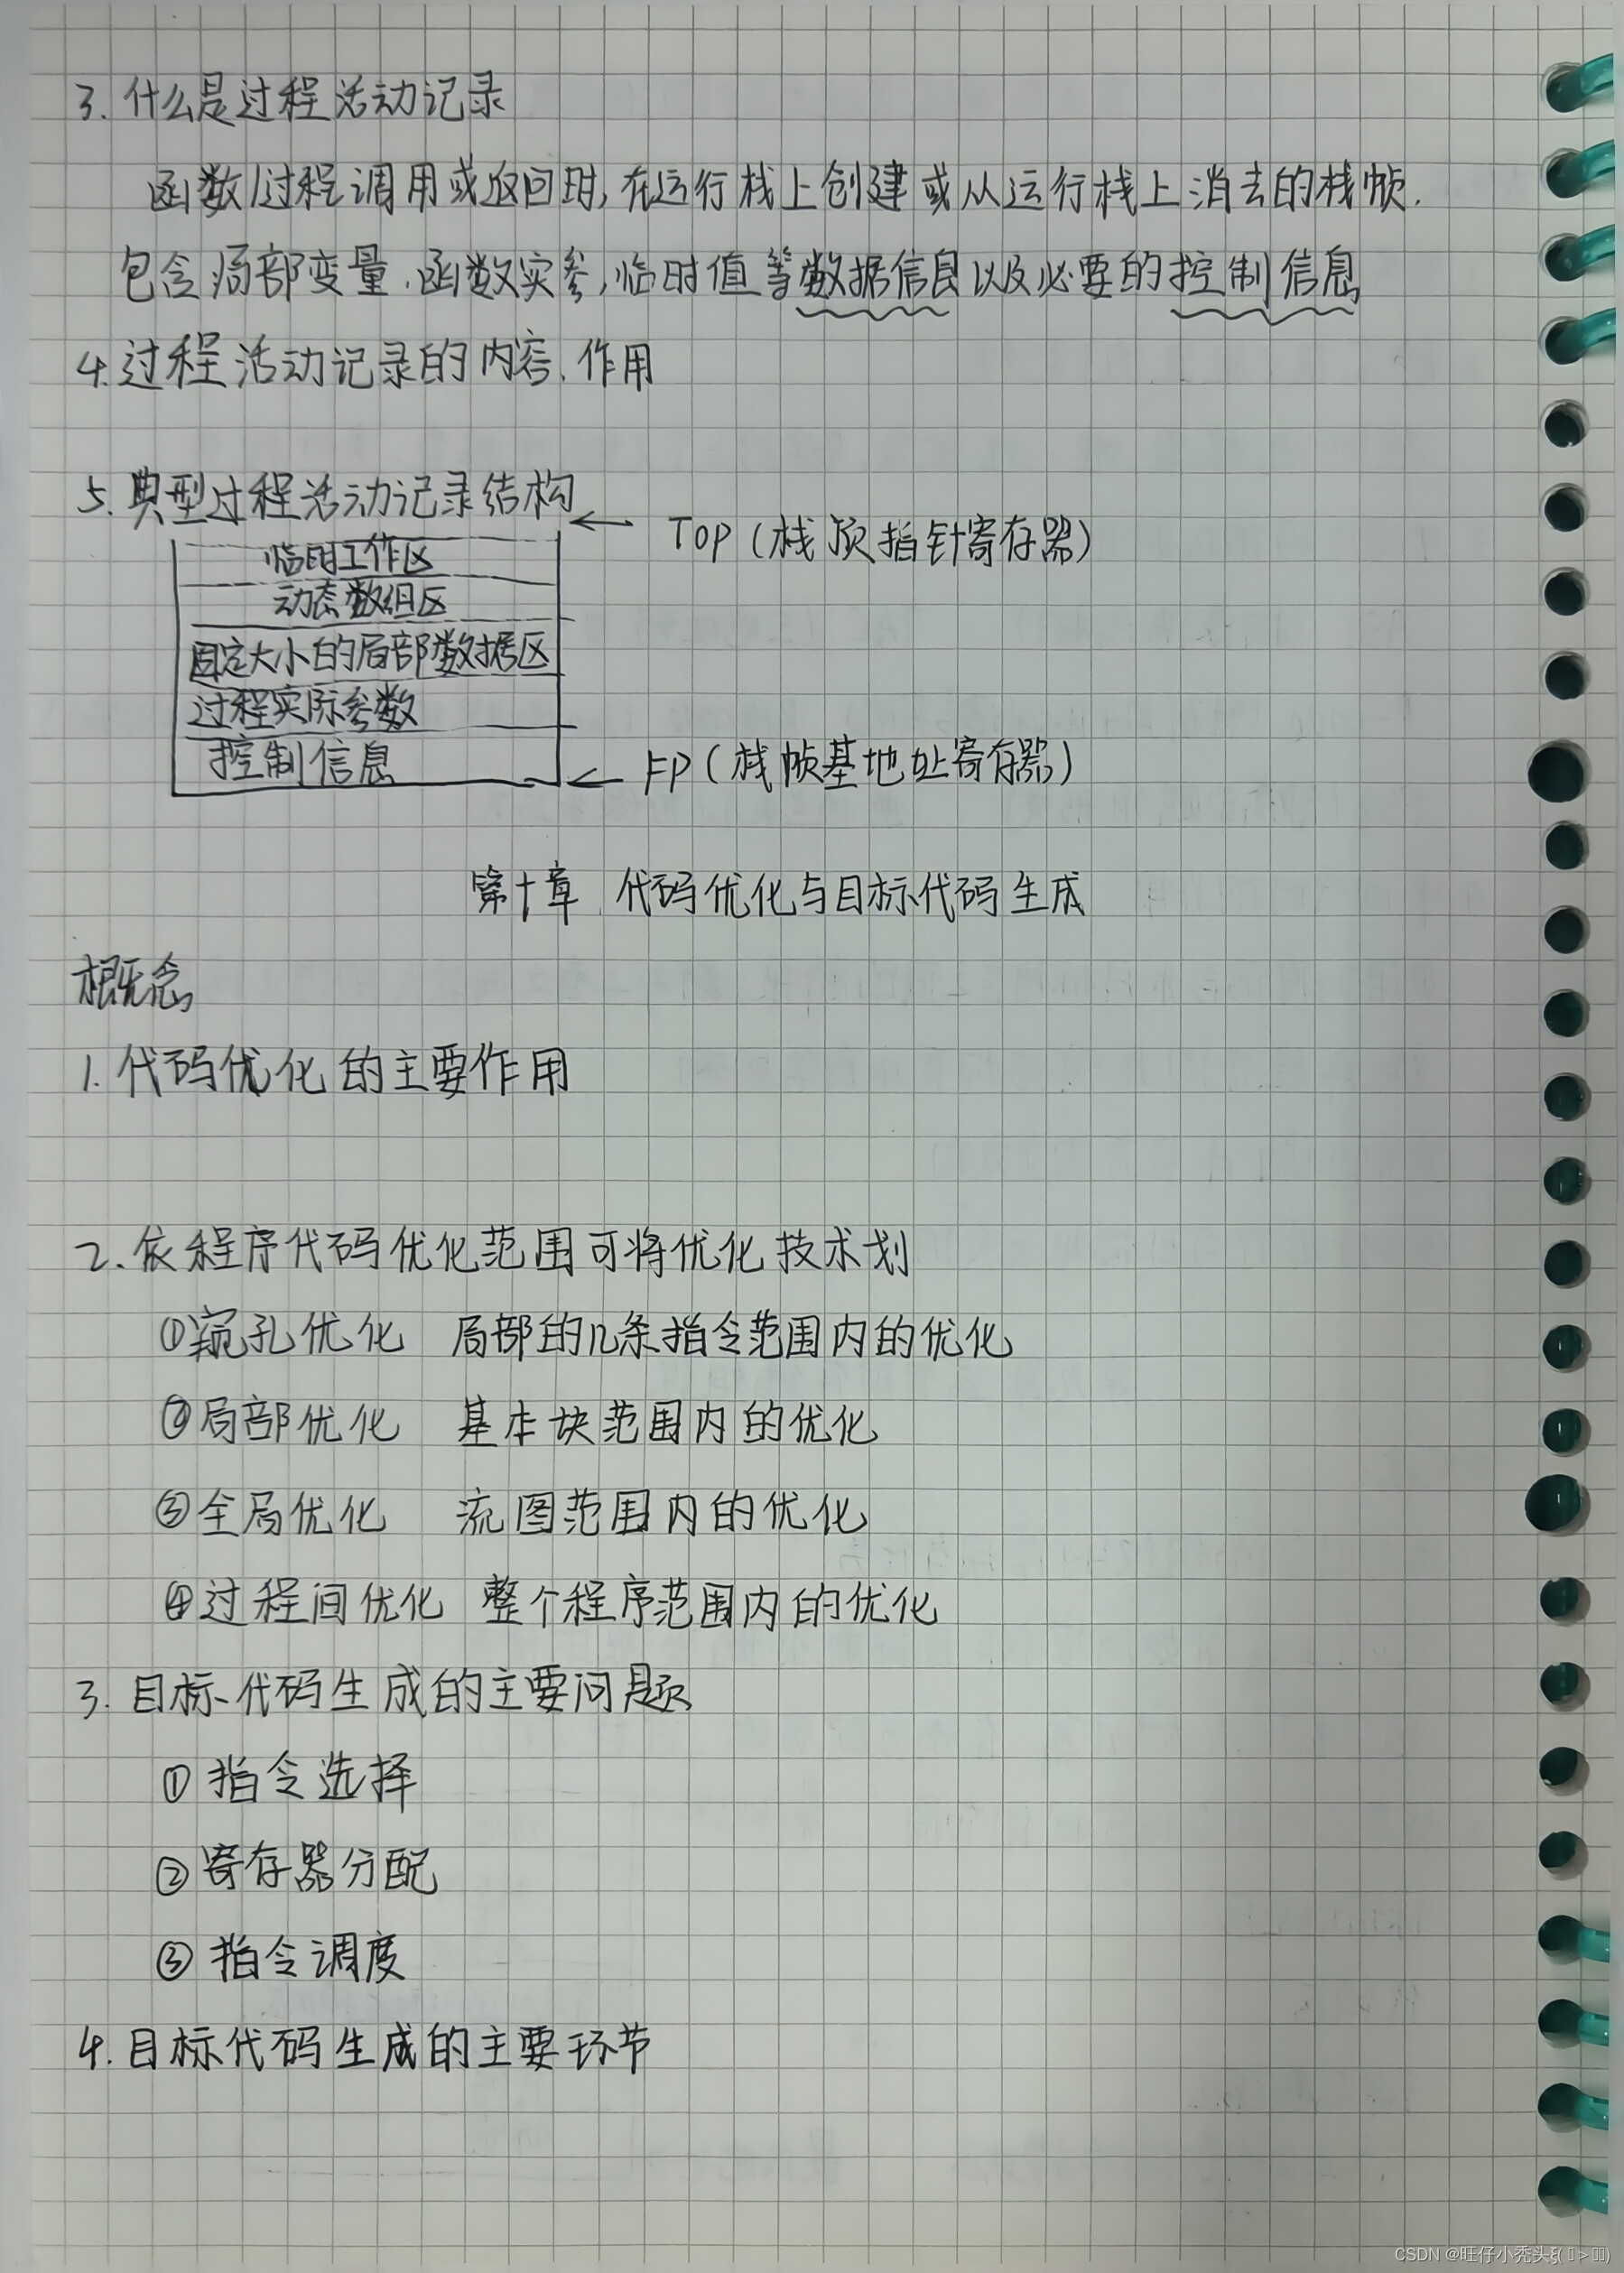 3. 什么是过程活动记录
函数/过程调用或返回时, 在运行栈上创建或从运行栈上消去的栈帧.
包含局部变量、函数实参, 临时值等数据信息以及必要的控制信息
4. 过程活动记录的内容、作用
5. 典型过程活动记录结构
← TOP (栈顶指针寄存器)
临时工作区
动态数组区
固定大小的局部数据区
过程实际参数
控制信息
← FP (栈帧基地址寄存器)
第十章 代码优化与目标代码生成
概念
1. 代码优化的主要作用
2. 依程序代码优化范围可将优化技术划
①窥孔优化 局部的几条指令范围内的优化
②局部优化 基本块范围内的优化
③全局优化 流图范围内的优化
④过程间优化 整个程序范围内的优化
3. 目标代码生成的主要问题
① 指令选择
② 寄存器分配
③ 指令调度
4. 目标代码生成的主要环节
CSDN @旺仔小秃头